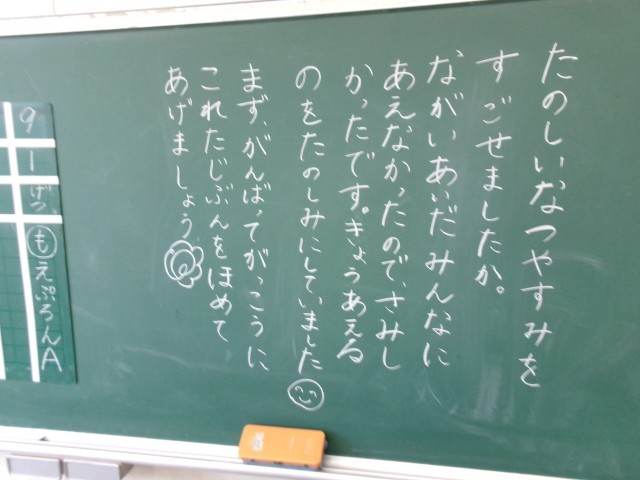 たのしいなつやすみを
すごせましたか。
ながいあいだみんなに
あえなかったので、さみし
かったです。きょうあえる
のをたのしみにしていました
まず、がんばってがっこうに
これたじぶんをほめて
あげましょう
9
1
げつ
もえぷろんA